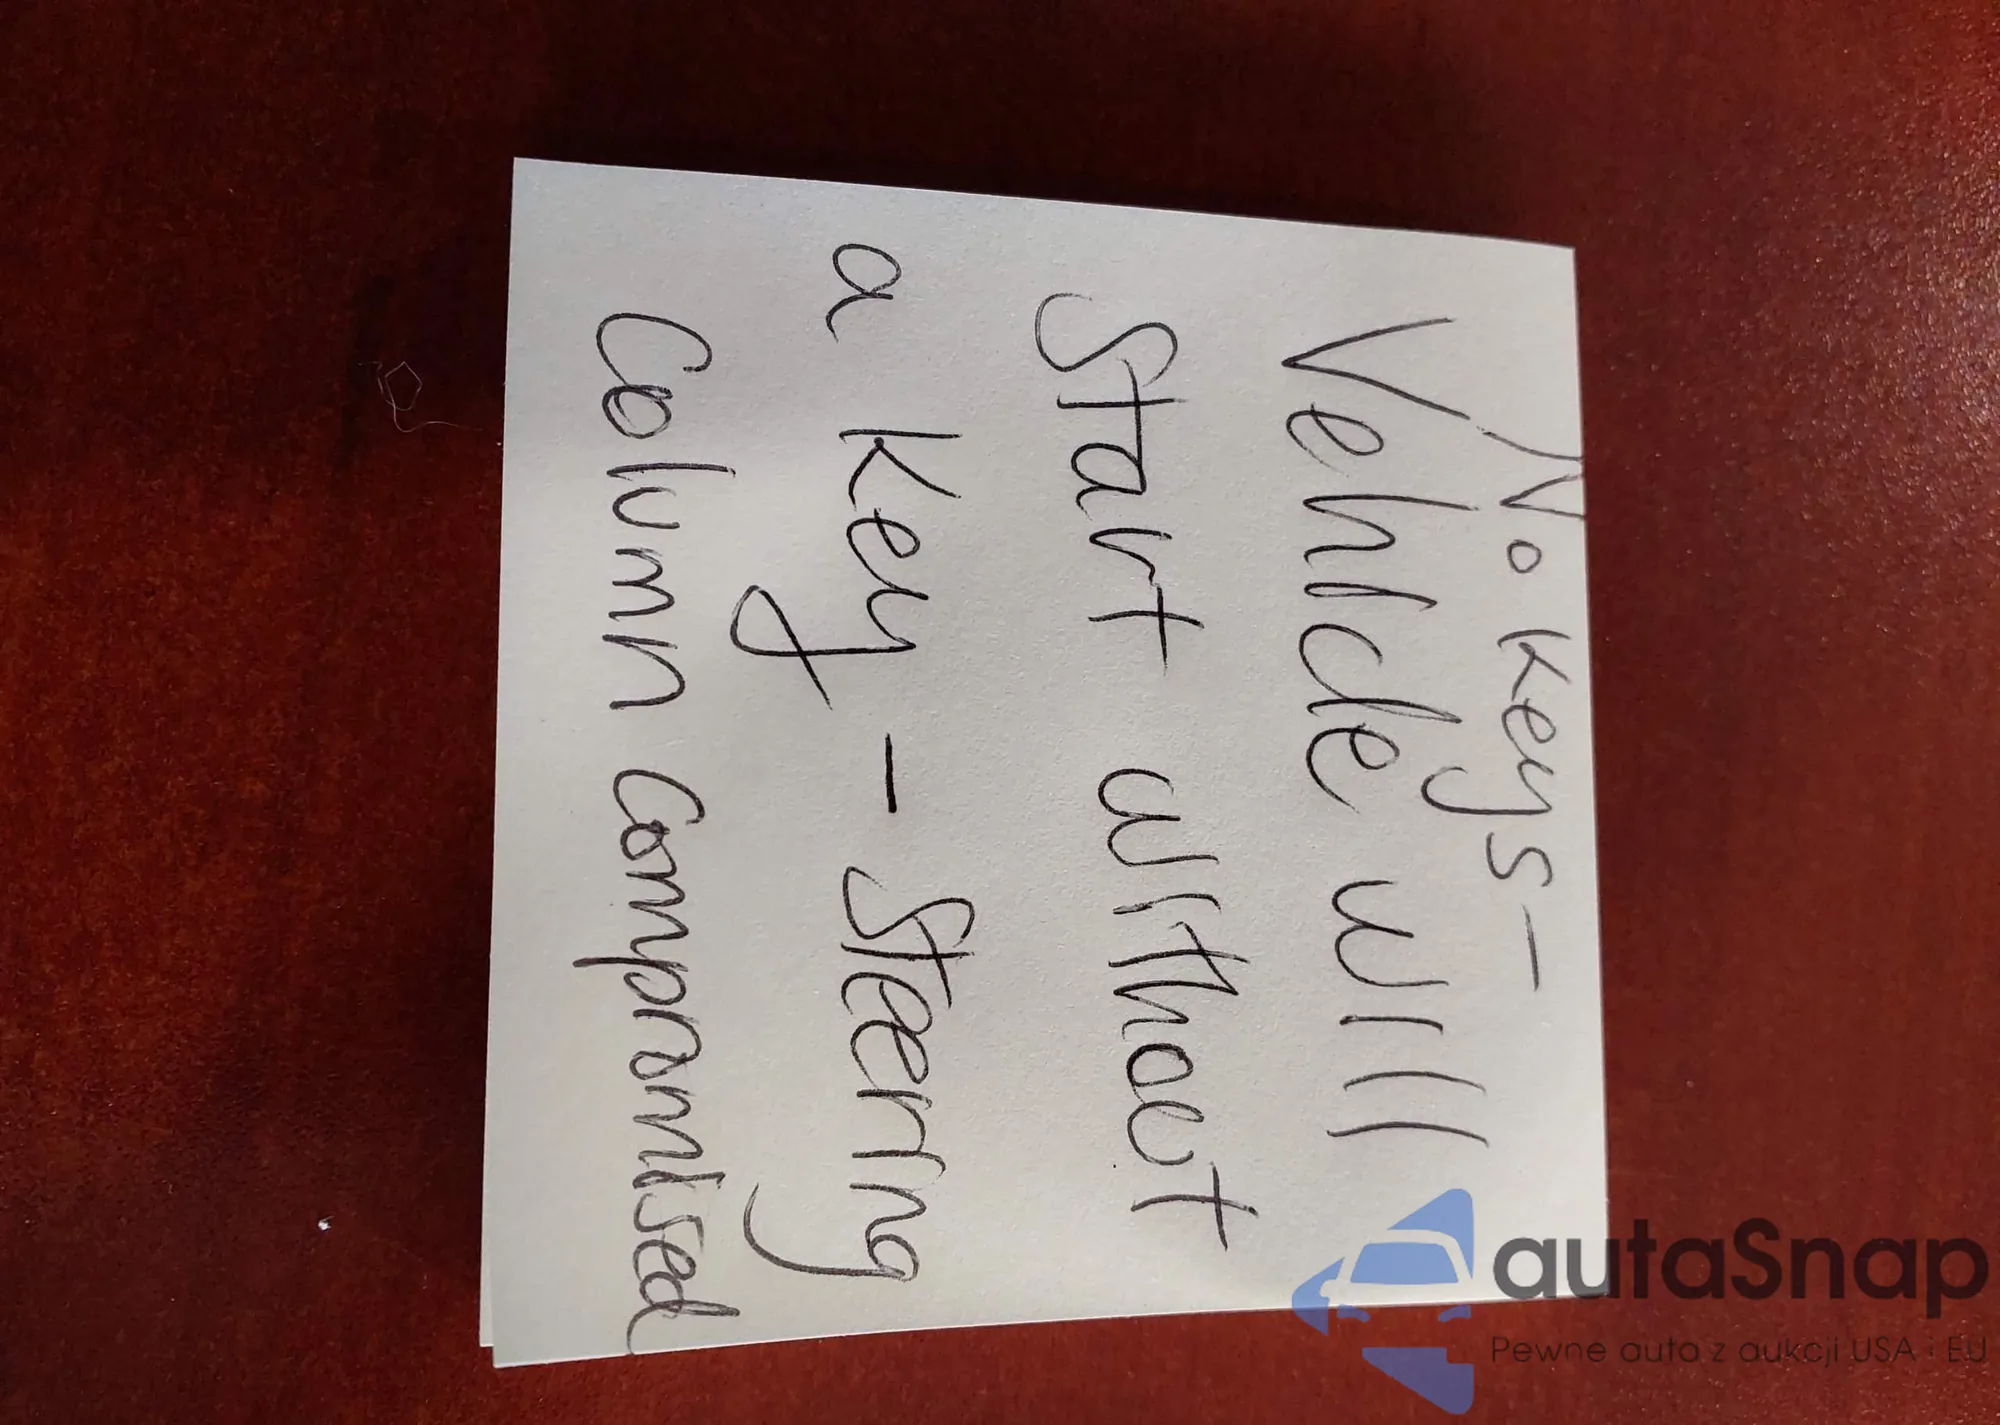 No Keys-
Vehicle will
Start without
a Key - Steering
Column Compromised
autaSnap
Pewne auta z aukcji USA i EU